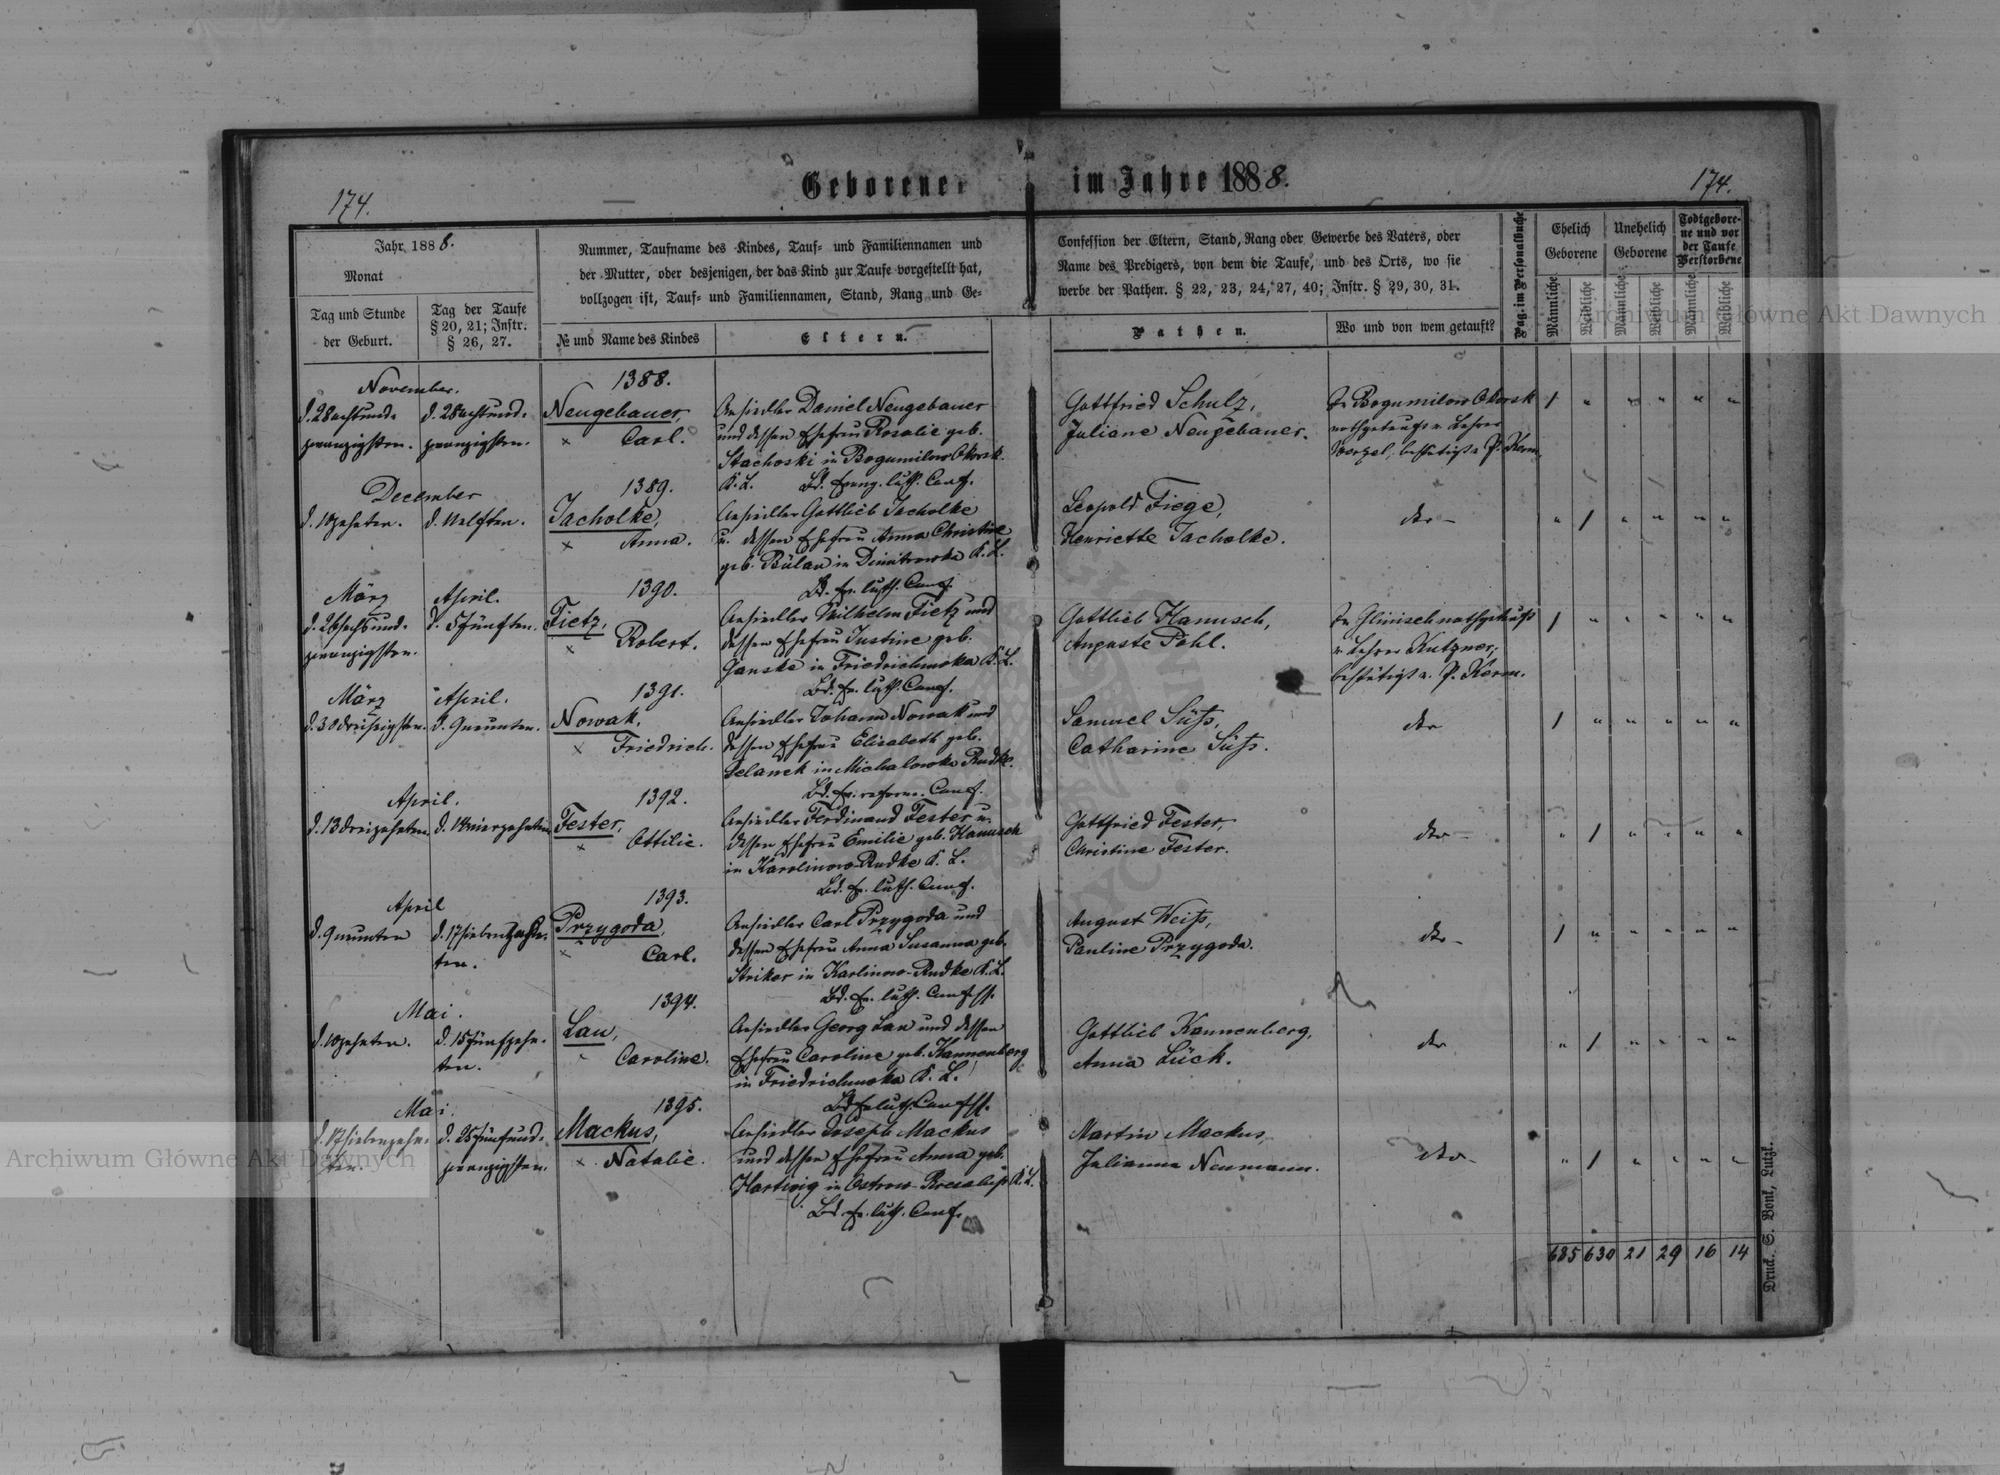 174.
Geborener im Jahre 1888.
174.
Jahr 1888.
Monat
Tag und Stunde
der Geburt.
Tag der Taufe
§ 20, 21; Instr.
§ 26, 27.
Nummer, Taufname des Kindes, Tauf- und Familiennamen und
der Mutter, oder desjenigen, der das Kind zur Taufe vorgestellt hat,
vollzogen ist, Tauf- und Familiennamen, Stand, Rang und Ge-
№ und Name des Kindes
Eltern.
Confession der Eltern, Stand, Rang oder Gewerbe des Vaters, oder
Name des Predigers, von dem die Taufe, und des Orts, wo sie
werbe der Pathen. § 22, 23, 24, 27, 40; Instr. § 29, 30, 31.
Pathen.
Wo und von wem getauft?
Pag. im Personalbuche
Ehelich
Geborene
Unehelich
Geborene
Todtgebore-
ne und vor
der Taufe
Verstorbene
Männliche
Weibliche
Männliche
Weibliche
Männliche
Weibliche
November.
d. 28 achtund-
zwanzigsten.
d. 28 achtund-
zwanzigsten.
1388.
Neugebauer
× Carl.
Ansiedler Daniel Neugebauer
und dessen Ehefrau Rosalie geb.
Stachoski in Bogumilow Okorsk
K. L. Bd. evang. luth. Conf.
Gottfried Schulz,
Juliane Neugebauer.
In Bogumilow Okorsk
nothgetauft v. Lehrer
bestätigt v. P. Kern.
1 " " " " "
December
d. 10 zehnten.
d. 11 elften.
1389.
Jacholke,
× Anna.
Ansiedler Gottlieb Jacholke
u. dessen Ehefrau Anna Christine
geb. Bülau in Dimitrowka K. L.
Bd. ev. luth. Conf.
Leopold Fiege,
Henriette Jacholke.
dto –
" 1 " " " "
März
d. 26 sechsund-
zwanzigsten.
April.
d. 5 fünften.
1390.
Tietz,
× Robert.
Ansiedler Wilhelm Tietz und
dessen Ehefrau Justine geb.
Janske in Friedrichowka K. L.
Bd. ev. luth. Conf.
Gottlieb Hanusch,
Auguste Pohl.
In Glinisch nothgetauft
v. Lehrer Kutzner,
bestätigt v. P. Kern.
1 " " " " "
März
d. 30 dreißigsten.
April.
d. 9 neunten.
1391.
Nowak,
× Friedrich.
Ansiedler Johann Nowak und
dessen Ehefrau Elisabeth geb.
Selanek in Michalowka Rudke.
Bd. ev. reform. Conf.
Samuel Süß,
Catharine Süß.
dto
1 " " " " "
April.
d. 13 dreizehnten.
d. 14 vierzehnten
1392.
Fester,
× Ottilie.
Ansiedler Ferdinand Fester u.
dessen Ehefrau Emilie geb. Hanusch
in Karolinow-Rudke K. L.
Bd. ev. luth. Conf.
Gottfried Fester,
Christine Fester.
dto –
" 1 " " " "
April
d. 9 neunten
d. 17 siebenzehn-
ten.
1393.
Przygoda,
× Carl.
Ansiedler Carl Przygoda und
dessen Ehefrau Anna Susanna geb.
Striker in Karlinow-Rudke K. L.
Bd. ev. luth. Conf.
August Weiß,
Pauline Przygoda.
dto –
1 " " " " "
Mai.
d. 10 zehnten.
d. 15 fünfzehn-
ten.
1394.
Lau,
Caroline.
Ansiedler Georg Lau und dessen
Ehefrau Caroline geb. Kannenberg
in Friedrichowka K. L.
Bd. ev. luth. Conf.
Gottlieb Kannenberg,
Anna Lück.
dto
" 1 " " " "
Mai.
d. 17 siebenzehn-
ten.
d. 25 fünfund-
zwanzigsten.
1395.
Mackus,
× Natalie.
Ansiedler Joseph Mackus
und dessen Ehefrau Anna geb.
Hartwig in Ostrow K. L.
Bd. ev. luth. Conf.
Martin Mackus,
Julianna Neumann.
dto –
" 1 " " " "
685 630 21 29 16 14
Druck. S. Bonk, Lutzk.
Archiwum Główne Akt Dawnych
Archiwum Główne Akt Dawnych